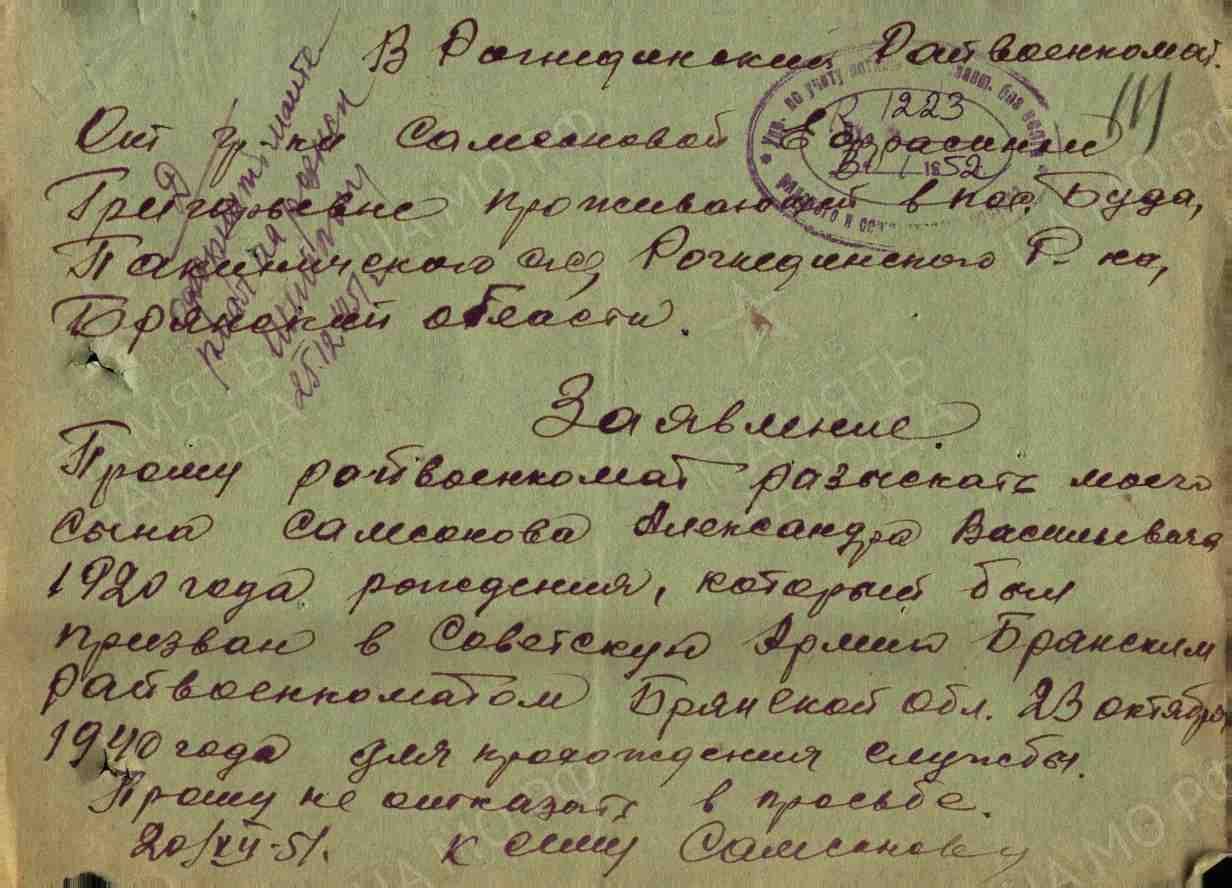 В Рогнединский Райвоенкомат.
От гр-ки Самсоновой Ефрасинии
Григорьевне проживающей в пос. Буда,
Пакиничского с/с, Рогнединского Р-на,
Брянский области.
Заявление.
Прошу райвоенкомат разыскать моего
сына Самсонова Александра Васильевича
1920 года рождения, который был
призван в Советскую Армию Брянским
райвоенкоматом Брянской обл. 23 октября
1940 года для прохождения службы.
Прошу не отказать в просьбе.
20/XII-51. К сему Самсонову
1223
1952
розыск
25.12.51